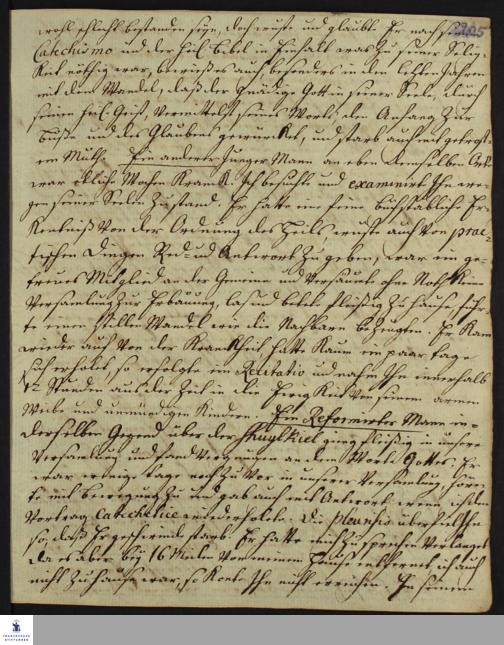 wohl schlecht bestanden seyn, doch wuste und glaubte Er nach sei
Catechismo und der heil. Bibel in Einfalt was zu seiner Selig-
keit nöthig war, bewieß es auch, besonders in den letzten Jahren
mit dem Wandel, daß der gnädige Gott in seiner Seele, durch
seinen heil. Geist, vermittelst seines Worts, den Anfang zur
Buße und des Glaubens gewürcket, und starb auch mit getrost-
em Muth. Ein anderer junger Mann an eben demselben Orte
war etliche Wochen Kranck. Ich besuchte und examinirte Ihn we-
gen seiner Seelen Zustand. Er hatte eine feine buchstäbliche Er-
kentniß von der Ordnung des Heils wuste auch von prac-
tischen Dingen Red- und Antwort zu geben, war ein ge-
treues Mitglied an der Gemeine und versäumte ohne Noth keine
Versamlung zur Erbauung, las und betete fleißig zu Hause, führ-
te einen stillen Wandel wie die Nachbarn bezeugten. Er kam
wieder auf von der Kranckheit hatte kaum ein paar Tage
sich erholet, so erfolgte ein und nahm Ihn innerhalb
Stunden aus der Zeit in die Ewigkeit von seinem armen
Weibe und unmündigen Kindern. Ein Reformirter Mann in
derselben Gegend über der Skuylkiel ging fleißig in unsere
Versamlung und fand Vergnügen an dem Worte Gottes. Er
war etliche Tage noch zuvor in unserer Versamlung, hör-
te mit Bewegung zu und gab auch mit Antwort wenn ich den
Vortrag Catechetice wiederholete. Die pleurisis überfiel Ihn
so, daß Er geschwind starb. Er hatte mich zu sprechen verlanget
da er aber bey 16 Meilen von meinem Hause entfernet ich auch
nicht zu Hause war, so konte Ihn nicht erreichen. In seinem
FRANCKESCHE
STIFTUNGEN